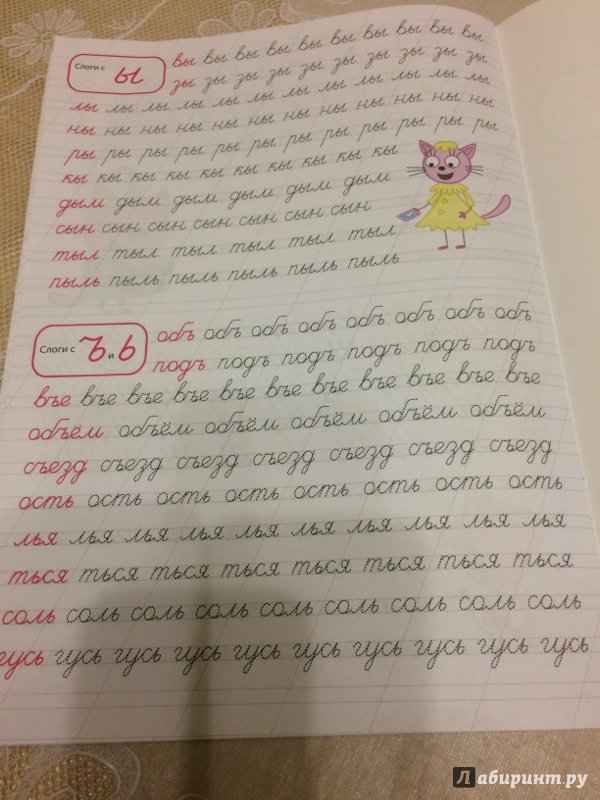 Слоги с ы
вы вы вы вы вы вы вы вы вы вы
зы зы зы зы зы зы зы зы зы зы
лы лы лы лы лы лы лы лы лы лы лы лы
ны ны ны ны ны ны ны ны ны ны ны ны
ры ры ры ры ры ры ры ры ры ры ры ры
кы кы кы кы кы кы кы кы кы кы
дым дым дым дым дым дым
сын сын сын сын сын сын сын
тыл тыл тыл тыл тыл тыл
пыль пыль пыль пыль пыль пыль
Слоги с ъ и ь
объ объ объ объ объ объ объ объ
подъ подъ подъ подъ подъ подъ
въе въе въе въе въе въе въе въе въе въе въе
объём объём объём объём объём объём
съезд съезд съезд съезд съезд съезд съезд
ость ость ость ость ость ость ость ость
лья лья лья лья лья лья лья лья лья лья
ться ться ться ться ться ться ться ться
соль соль соль соль соль соль соль соль соль
гусь гусь гусь гусь гусь гусь гусь гусь гусь гусь
Лабиринт.ру